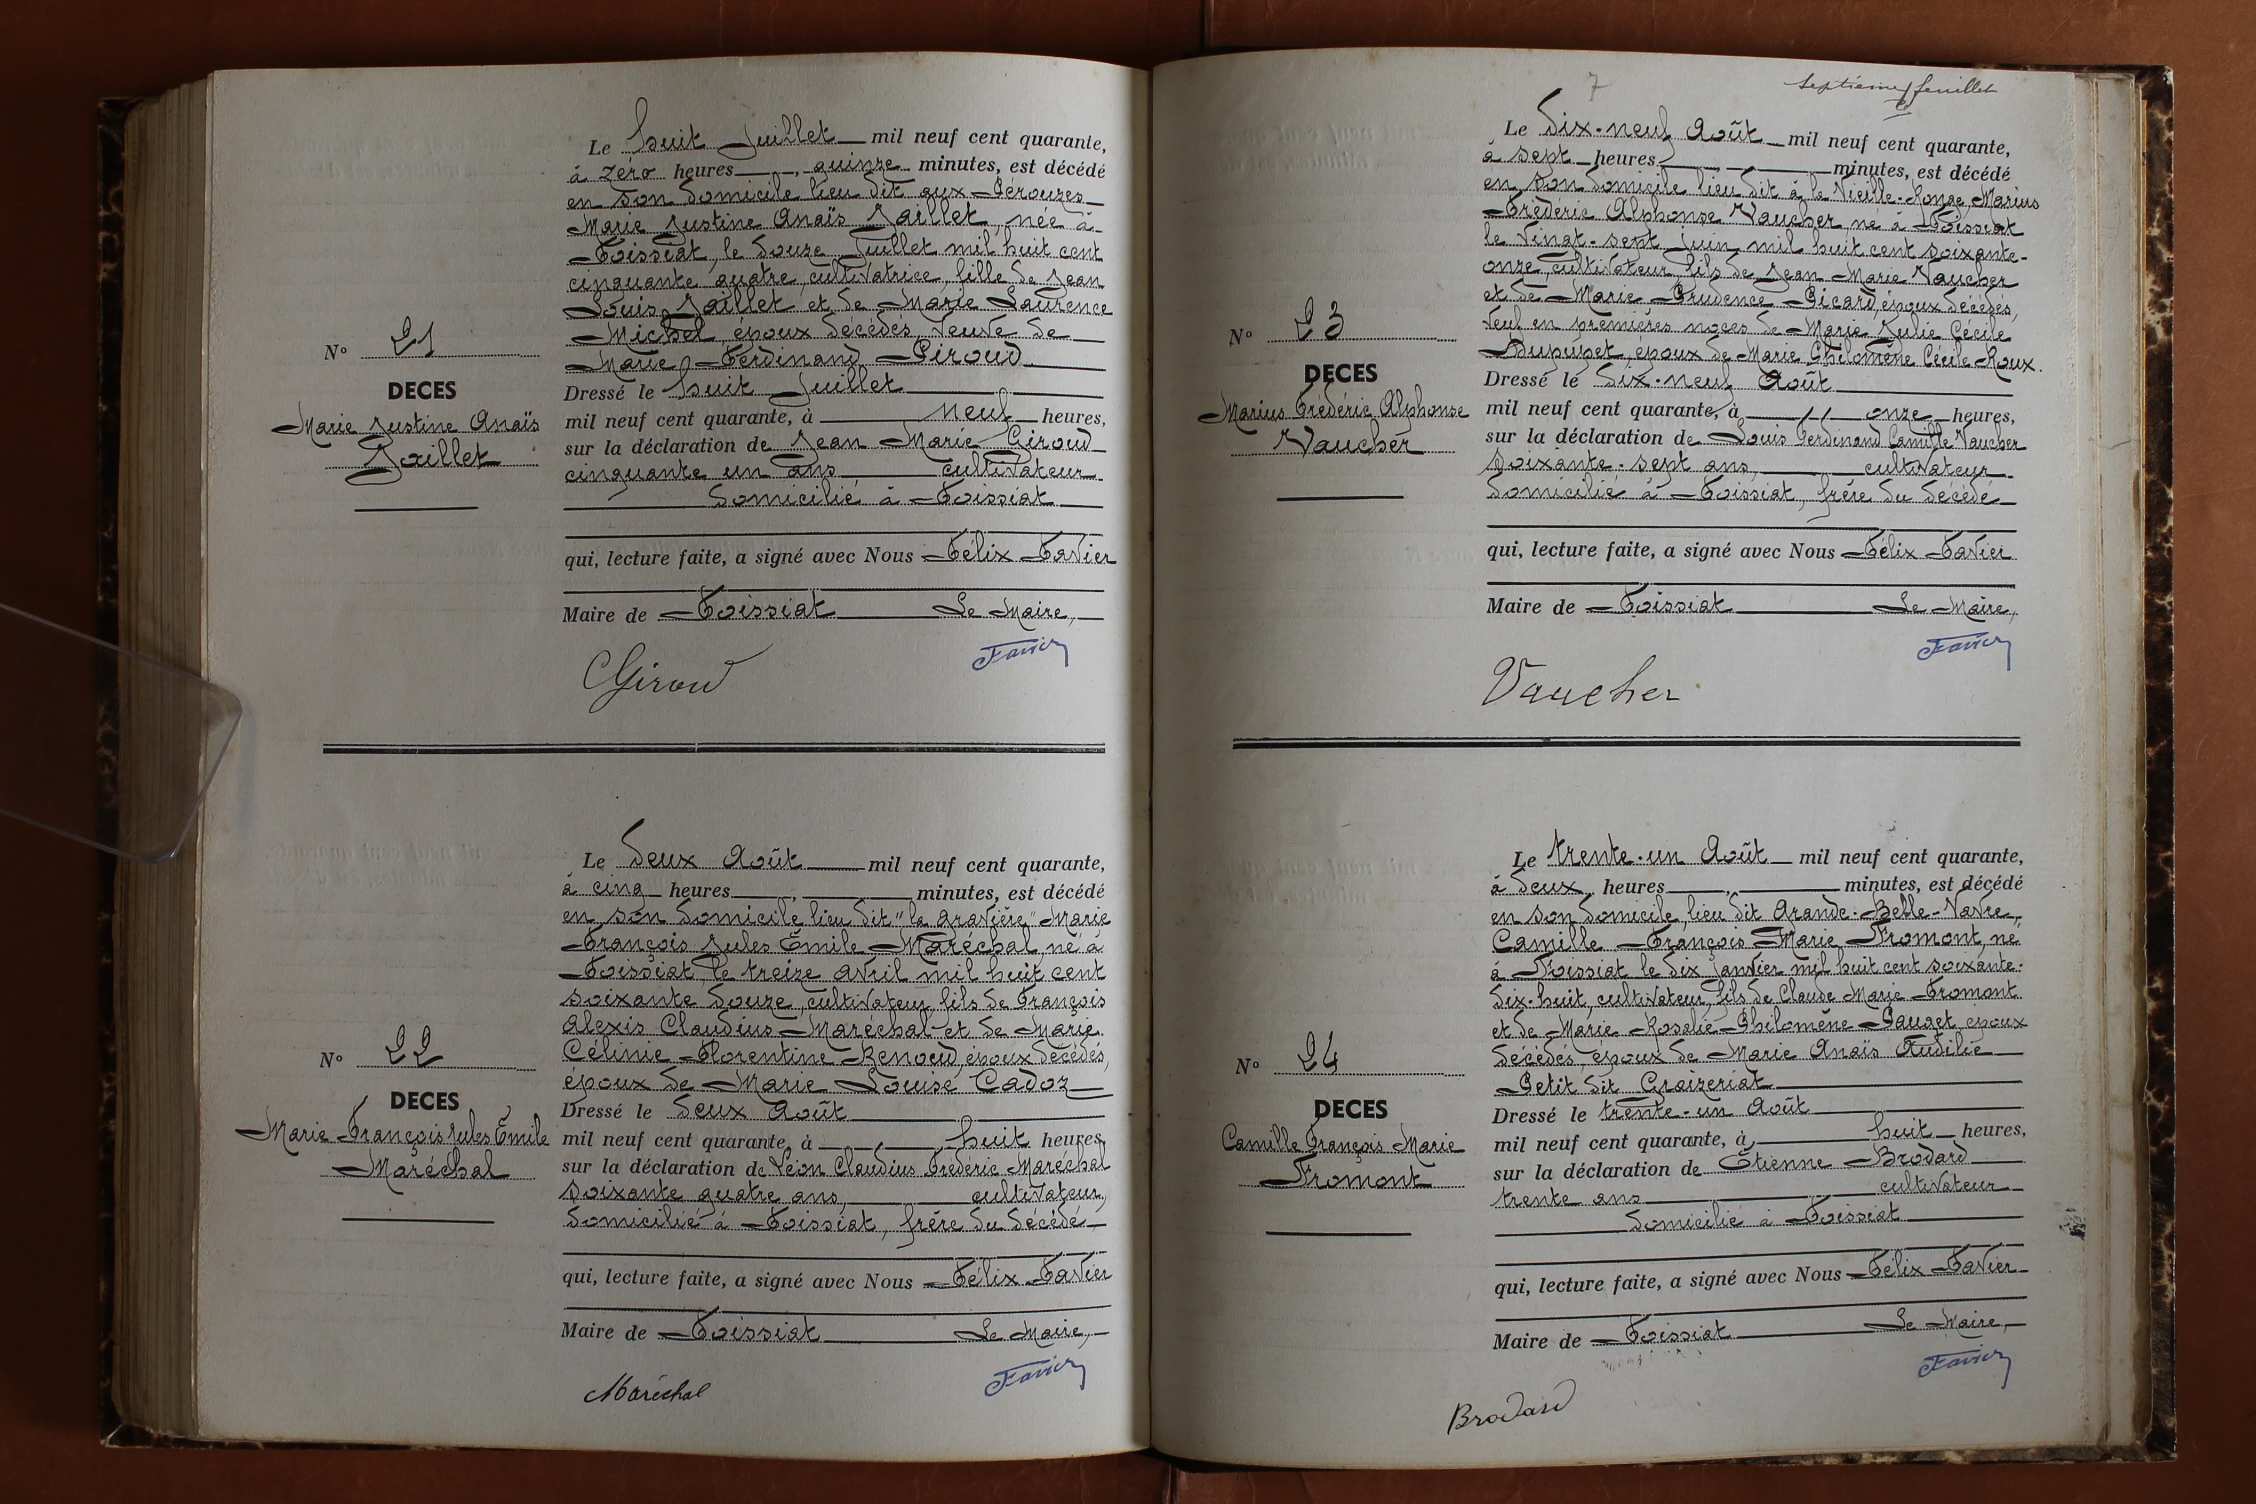 Le huit Juillet mil neuf cent quarante,
à zéro heures, quinze minutes, est décédé
en son domicile lieu dit aux Pérouzes
Marie Justine Anaïs Jaillet, née à
Foissiat, le douze Juillet mil huit cent
cinquante quatre, cultivatrice, fille de Jean
Louis Jaillet et de Marie Laurence
Michel, époux décédés, Veuve de
Marie Ferdinand Piroud
N° 21
DECES
Marie Justine Anaïs
Jaillet
Dressé le huit Juillet
mil neuf cent quarante, à neuf heures,
sur la déclaration de Jean Marie Giroud
cinquante un ans cultivateur
domicilié à Foissiat
qui, lecture faite, a signé avec Nous Félix Favier
Maire de Foissiat Le Maire,
Giroud
Favier
Le deux Août mil neuf cent quarante,
à cinq heures, minutes, est décédé
en son domicile lieu dit "la Gravière" Marie
François Jules Émile Maréchal, né à
Foissiat, le treize Avril mil huit cent
soixante douze, cultivateur, fils de François
Alexis Claudius Maréchal et de Marie
Célinie Florentine Renoud, époux décédés,
époux de Marie Louise Cadoz
N° 22
DECES
Marie François Jules Émile
Maréchal
Dressé le deux Août
mil neuf cent quarante, à huit heures,
sur la déclaration de Léon Claudius Frédéric Maréchal
soixante quatre ans, cultivateur,
domicilié à Foissiat, frère du décédé
qui, lecture faite, a signé avec Nous Félix Favier
Maire de Foissiat Le Maire,
Maréchal
Favier
7
septième feuillet
Le dix-neuf Août mil neuf cent quarante,
à sept heures, minutes, est décédé
en son domicile lieu dit à la Vieille-Ronge Marius
Frédéric Alphonse Vaucher, né à Foissiat
le vingt-sept Juin mil huit cent soixante-
onze, cultivateur, fils de Jean Marie Vaucher
et de Marie Prudence Picard, époux décédés,
Veuf en premières noces de Marie Julie Cécile
Dupupet, époux de Marie Philomène Cécile Roux.
N° 23
DECES
Marius Frédéric Alphonse
Vaucher
Dressé le dix-neuf Août
mil neuf cent quarante, à onze heures,
sur la déclaration de Louis Ferdinand Camille Vaucher
soixante-sept ans, cultivateur
domicilié à Foissiat, frère du décédé
qui, lecture faite, a signé avec Nous Félix Favier
Maire de Foissiat Le Maire,
Vaucher
Favier
Le trente-un Août mil neuf cent quarante,
à deux heures, minutes, est décédé
en son domicile, lieu dit Grande-Belle-Vavre,
Camille François Marie Fromont, né
à Foissiat le dix Janvier mil huit cent soixante-
dix-huit, cultivateur, fils de Claude Marie Fromont
et de Marie Rosalie Philomène Pauget, époux
décédés, époux de Marie Anaïs Audilie
Petit dit Graizeriat
N° 24
DECES
Camille François Marie
Fromont
Dressé le trente-un Août
mil neuf cent quarante, à huit heures,
sur la déclaration de Étienne Brodard
trente ans cultivateur
domicilié à Foissiat
qui, lecture faite, a signé avec Nous Félix Favier
Maire de Foissiat Le Maire,
Brodard
Favier